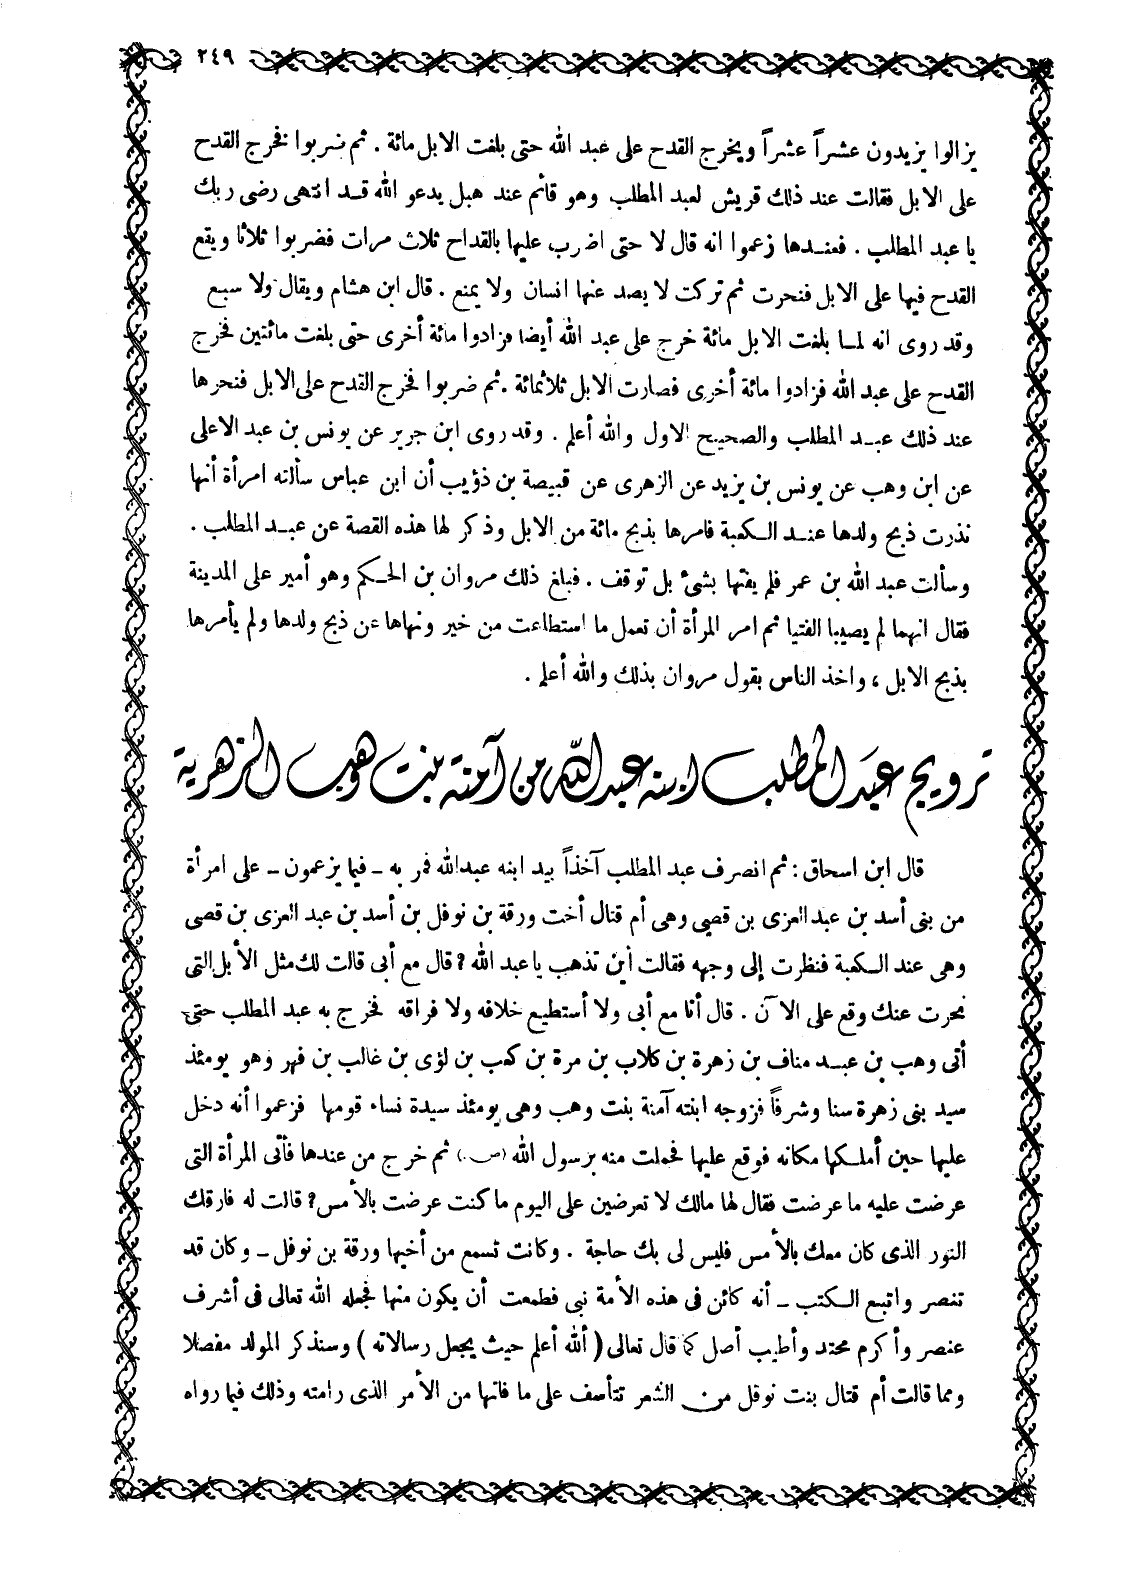 ٢٤٩
يزالوا يزيدون عشراً عشراً ويخرج القدح على عبد الله حتى بلغت الابل مائة . ثم ضربوا فخرج القدح
على الابل فقالت عند ذلك قريش لعبد المطلب وهو قائم عند هبل يدعو الله قد انتهى رضى ربك
يا عبد المطلب . فعندها زعموا انه قال لا حتى اضرب عليها بالقداح ثلاث مرات فضربوا ثلاثا ويقع
القدح فيها على الابل فنحرت ثم تركت لا يصد عنها انسان ولا يمنع . قال ابن هشام ويقال ولا سبع
وقد روى انه لما بلغت الابل مائة خرج على عبد الله أيضا فزادوا مائة أخرى حتى بلغت مائتين فخرج
القدح على عبد الله فزادوا مائة أخرى فصارت الابل ثلاثمائة . ثم ضربوا فخرج القدح على الابل فنحرها
عند ذلك عبد المطلب والصحيح الاول والله أعلم . وقد روى ابن جرير عن يونس بن عبد الاعلى
عن ابن وهب عن يونس بن يزيد عن الزهرى عن قبيصة بن ذؤيب أن ابن عباس سألته امرأة أنها
نذرت ذبح ولدها عند الكعبة فامرها بذبح مائة من الابل وذكر لها هذه القصة عن عبد المطلب .
وسألت عبد الله بن عمر فلم يفتها بشئ بل توقف . فبلغ ذلك مروان بن الحكم وهو أمير على المدينة
فقال انهما لم يصيبا الفتيا ثم امر المرأة أن تعمل ما استطاعت من خير ونهاها عن ذبح ولدها ولم يأمرها
بذبح الابل ، واخذ الناس بقول مروان بذلك والله أعلم .
تزويج عبد المطلب ابنه عبد الله من آمنة بنت وهب الزهرية
قال ابن اسحاق : ثم انصرف عبد المطلب آخذاً بيد ابنه عبدالله فمر به - فيما يزعمون - على امرأة
من بنى أسد بن عبد العزى بن قصى وهى أم قتال أخت ورقة بن نوفل بن أسد بن عبد العزى بن قصى
وهى عند الكعبة فنظرت إلى وجهه فقالت أين تذهب يا عبد الله ? قال مع أبى قالت لك مثل الأبل التى
نحرت عنك وقع على الآن . قال أنا مع أبى ولا أستطيع خلافه ولا فراقه فخرج به عبد المطلب حتى
أتى وهب بن عبد مناف بن زهرة بن كلاب بن مرة بن كعب بن لؤى بن غالب بن فهر وهو يومئذ
سيد بنى زهرة سنا وشرفاً فزوجه ابنته آمنة بنت وهب وهى يومئذ سيدة نساء قومها فزعموا أنه دخل
عليها حين أملكها مكانه فوقع عليها فحملت منه برسول الله (ص) ثم خرج من عندها فأتى المرأة التى
عرضت عليه ما عرضت فقال لها مالك لا تعرضين على اليوم ما كنت عرضت بالأمس ? قالت له فارقك
النور الذى كان معك بالأمس فليس لى بك حاجة . وكانت تسمع من أخيها ورقة بن نوفل - وكان قد
تنصر واتبع الكتب - أنه كائن فى هذه الأمة نبى فطمعت أن يكون منها فجعله الله تعالى فى أشرف
عنصر وأكرم محتد وأطيب أصل كما قال تعالى ( ألله أعلم حيث يجعل رسالاته ) وسنذكر المولد مفصلا
ومما قالت أم قتال بنت نوفل من الشعر تتأسف على ما فاتها من الأمر الذى رامته وذلك فيما رواه